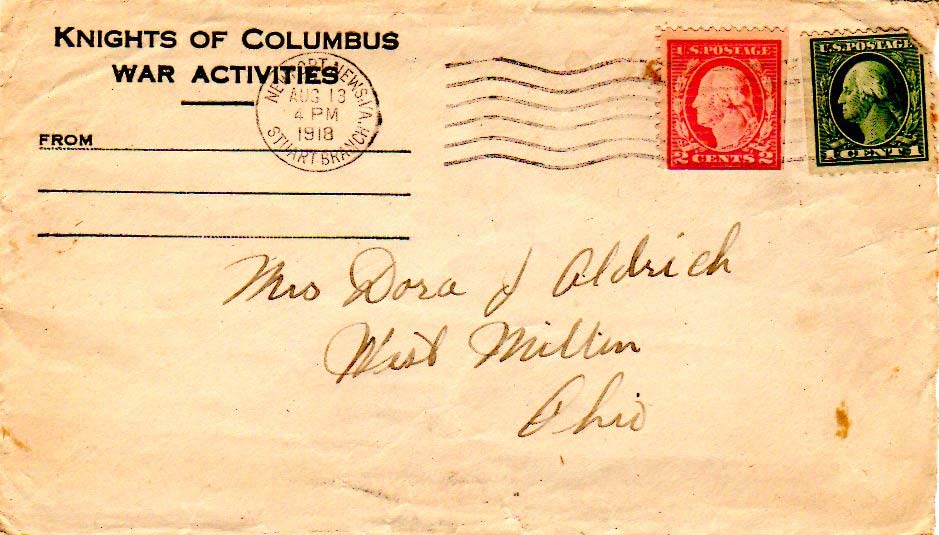 KNIGHTS OF COLUMBUS
WAR ACTIVITIES
FROM
NEWPORT NEWS, VA.
AUG 13
4 PM
1918
STUART BRANCH
U.S. POSTAGE
2 CENTS 2
U.S. POSTAGE
1 CENT 1
Mrs Dora J Aldrich
West Millin
Ohio